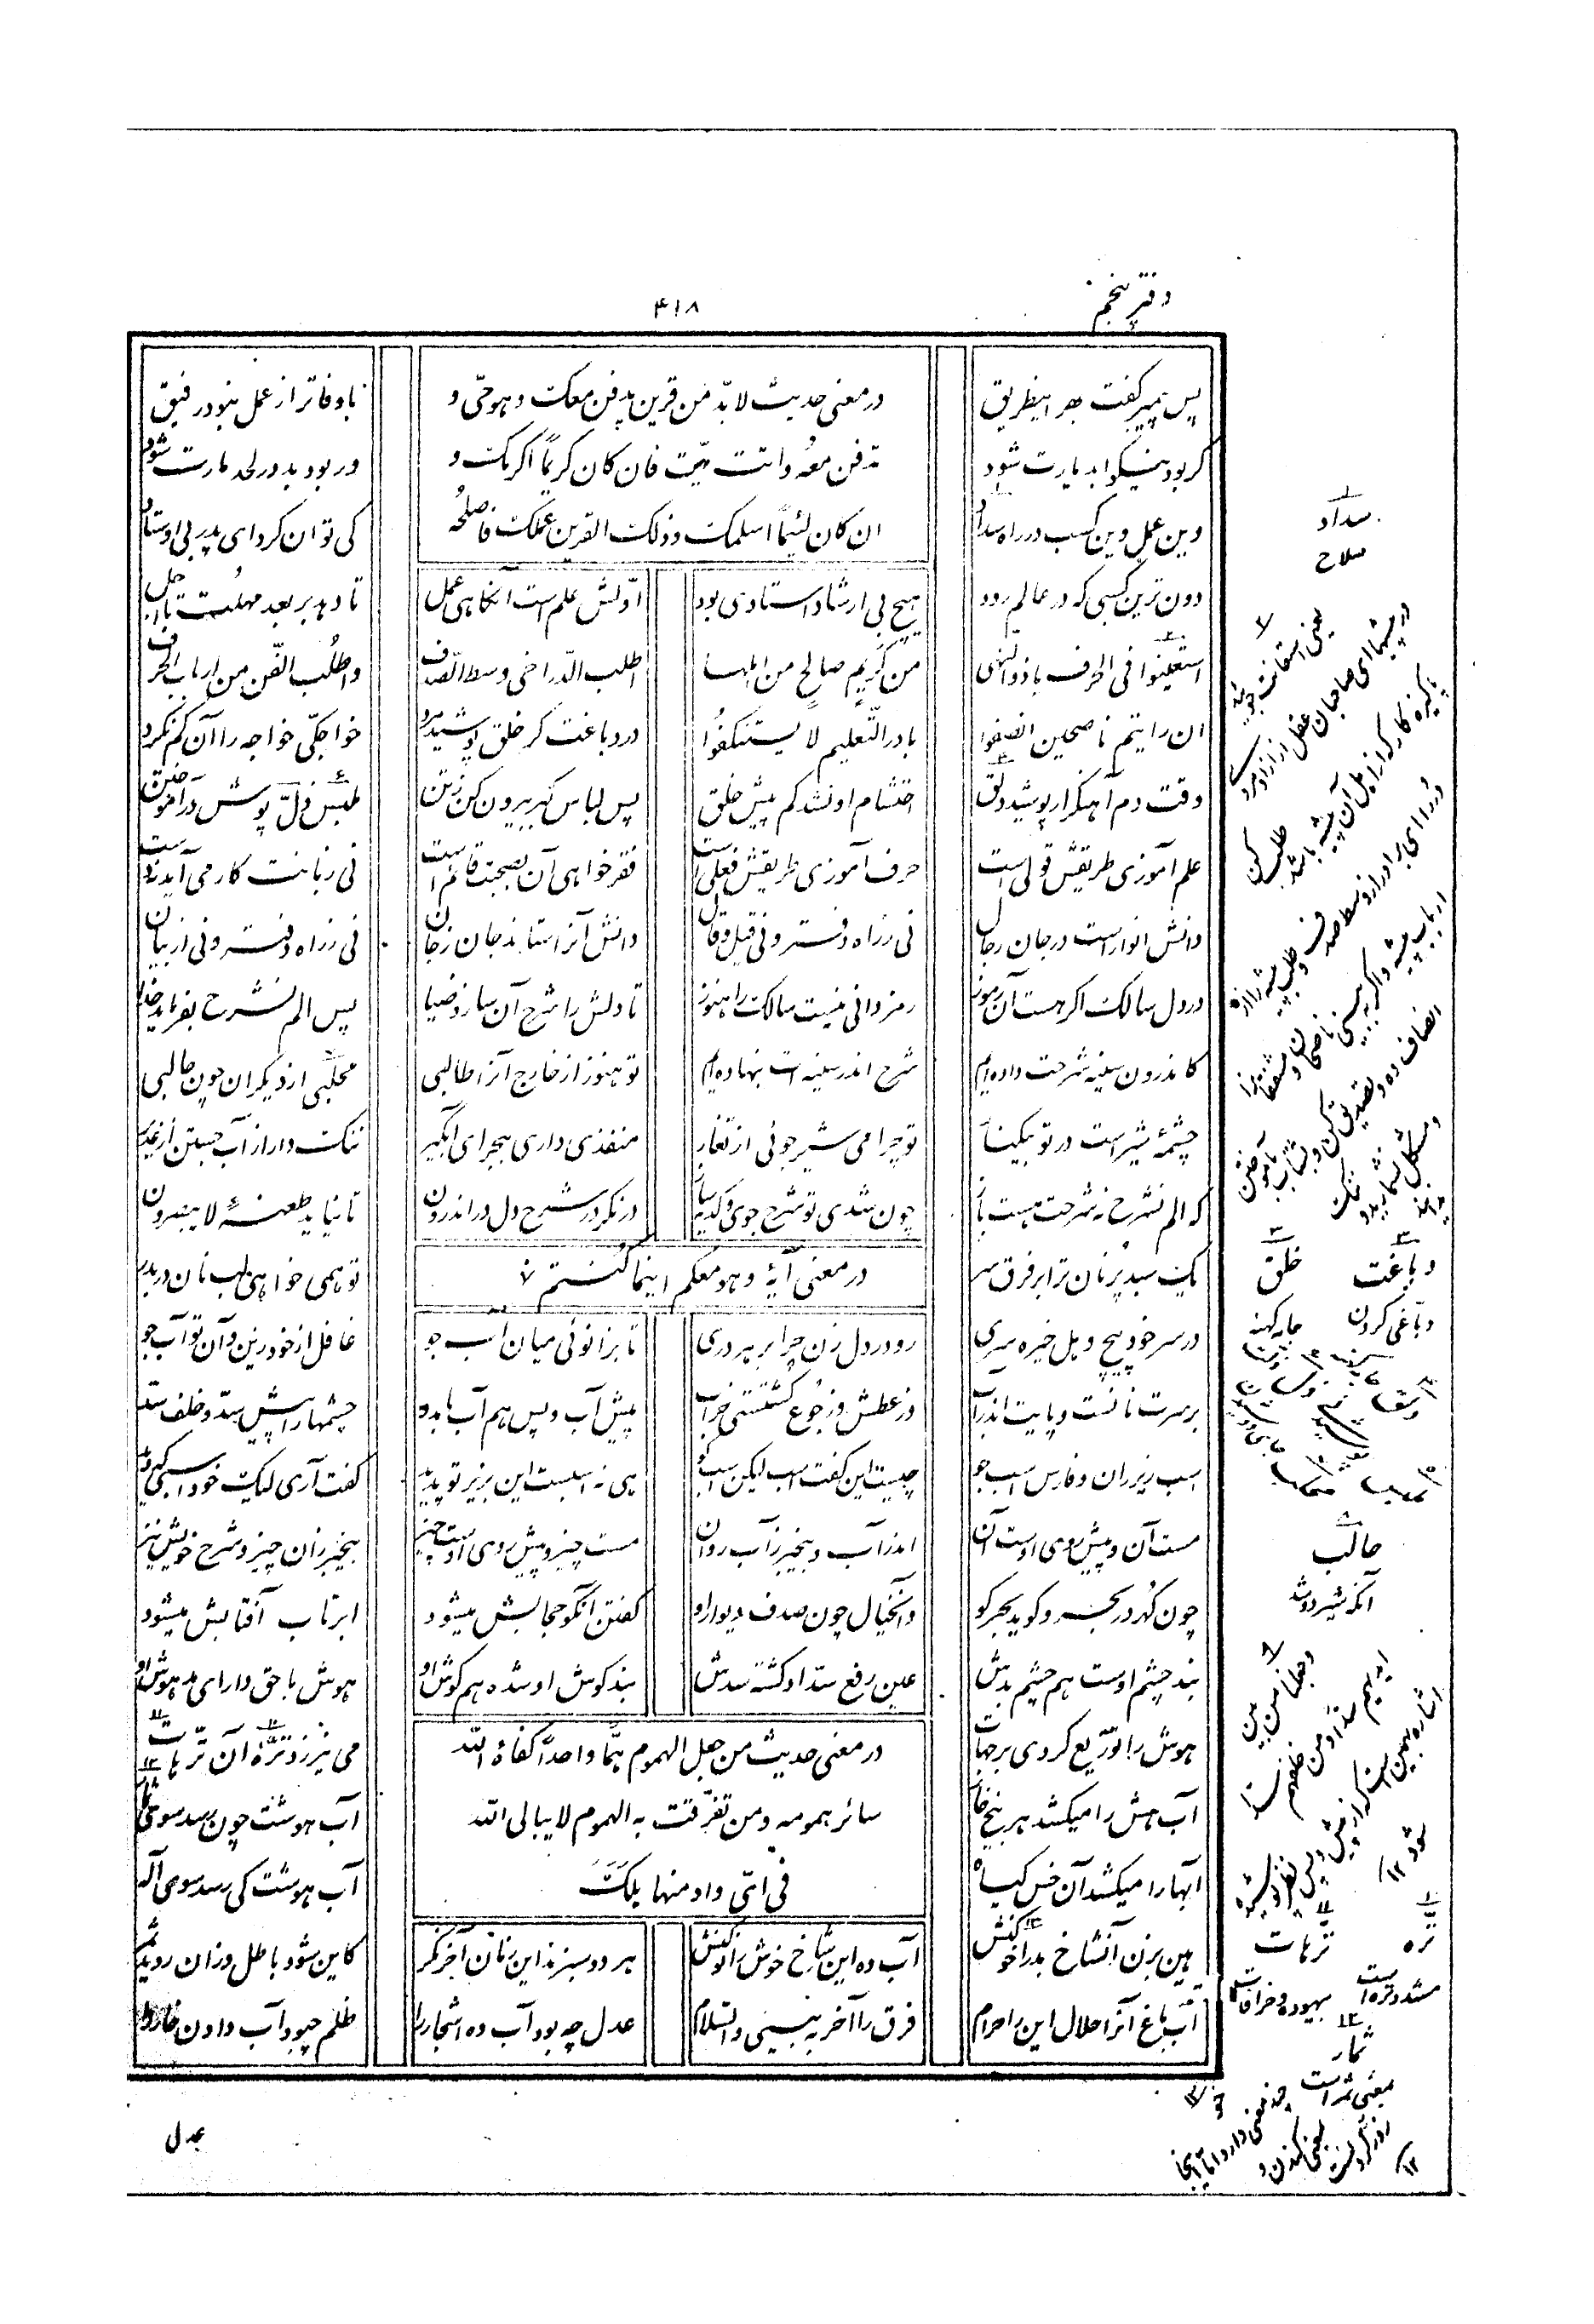 دفتر پنجم
۴۱۸
پس پیمبر گفت بهر اینطریق
باوفاتر از عمل نبود رفیق
در معنی حدیث لابدّ من قرین یدفن معک و هو حیّ و
گر بود نیکو ابد یارت شود
ور بود بد در لحد مارت شود
تدفن معهُ و انت میّت فان کان کریماً اکرمک و
وین عمل وین کسب در راه سداد
کی توان کرد ای پدر بی اوستاد
ان کان لئیماً اسلمک و ذلک القرین عملک فاصلحُه
دون ترین کسبی که در عالم رود
هیچ بی ارشاد استادی بود
اوّلش علم است آنگاهی عمل
تا دهد بر بعد مهلت تا اجل
استعینوا فی الحرف یا ذوالنهی
من کریم صالحٍ من اهلها
اطلب الدّر اخی وسط الصّدف
واطلُب الفّن من ارباب الحرف
ان رایتم ناصحین انصفوا
بادر التّعلیم لا یستنکفُوا
در دباغت گر خلق پوشید مرد
خواجگی خواجه را آن کم نکرد
وقت دم آهنگر ار پوشید دلق
احتشام او نشد کم پیش خلق
پس لباس کبر بیرون کن ز تن
ملبس ذلّ پوش در آموختن
علم آموزی طریقش قولی است
حرف آموزی طریقش فعلی است
فقر خواهی آن بصحبت قائم است
نی زبانت کار می آید نه دست
دانش انوار است در جان رجال
نی ز راه دفتر و نی قیل و قال
دانش آنرا ستاند جان ز جان
نی ز راه دفتر و نی از بیان
در دل سالک اگر هست آن رموز
رمز دانی نیست سالک را هنوز
تا دلش را شرح آن سازد ضیا
پس الم نشرح بفرماید خدا
کاندرون سینه شرحت داده ایم
شرح اندر سینه ات بنهاده ایم
تو هنوز از خارج آنرا طالبی
محلبی از دیگران چون حالبی
چشمهٔ شیر است در تو بیکنار
تو چرا می شیر جوئی از تغار
منفذی داری ببحر ای آبگیر
ننگ دار از آب جستن از غدیر
که الم نشرح نه شرحت هست باز
چون شدی تو شرح جوی و کدیه ساز
در نگر در شرح دل در اندرون
تا نیاید طعنهٔ لا یبصرون
در معنی آیهٔ و هو معکم اینما کُنتم
یک سبد پر نان ترا بر فرق سر
تو همی خواهی لب نان در بدر
در سر خود پیچ و هل خیره سری
رو در دل زن چرا بر هر دری
تا بزانوئی میان آب جو
غافل از خود زین و آن تو آب جو
بر سرت نانست و پایت اندر آب
وز عطش وز جُوع گشتستی خراب
پیش آب و پس هم آب با مدد
چشمها را پیش سدّ و خلف سد
اسب زیر ران و فارس اسب جو
چیست این گفت اسب لیکن اسب کو
هی نه اسبست این بزیر تو پدید
گفت آری لیک خود اسبی که دید
مست آن و پیش روی اوست آن
اندر آب و بیخبر ز آب روان
مست چیز و پیش روی اوست چیز
بیخبر زان چیز و شرح خویش نیز
چون گهر در بحر و گوید بحر کو
و آنخیال چون صدف دیوار او
گفتن آنکو حجابش میشود
ابر تاب آفتابش میشود
بند چشم اوست هم چشم بدش
عین رفع سدّ او گشته سدش
بند گوش او شده هم گوش او
هوش با حق دار ای مدهوش او
در معنی حدیث من جعل الهموم همّاً واحداً کفاهُ الله
سائر همومه و من تفرّقت به الهموم لا یبالی الله
فی ایّ واد منها یهلک
هوش را توزیع کردی بر جهات
می نیرزد ترّهٔ آن تُرّهات
آب هش را میکشد هر بیخ خار
آب هوشت چون رسد سوی ثمار
آبها را میکشد آن خس گیاه
آب هوشت کی رسد سوی آله
هین بزن آنشاخ بد را خو کنش
آب ده این شاخ خوش را نو کنش
هر دو سبزند این زمان آخر نگر
کاین شود باطل وزان روید ثمر
آب باغ آنرا حلال این را حرام
فرق را آخر به بینی والسّلام
عدل چه بود آب ده اشجار را
ظلم چبود آب دادن خار را
عدل
سداد
صلاح
یعنی استعانت جوئید
در پیشها ای صاحبان عقل از آزاد مردی
پاکیزه کار که از اهل آن پیشه باشد
دباغت
دباغی کردن
خلق
جامه کهنه
حالب
آنکه شیر دوشد
ترّه
ترهات
بیهوده و خرافات
ثمار
بمعنی ثمر است